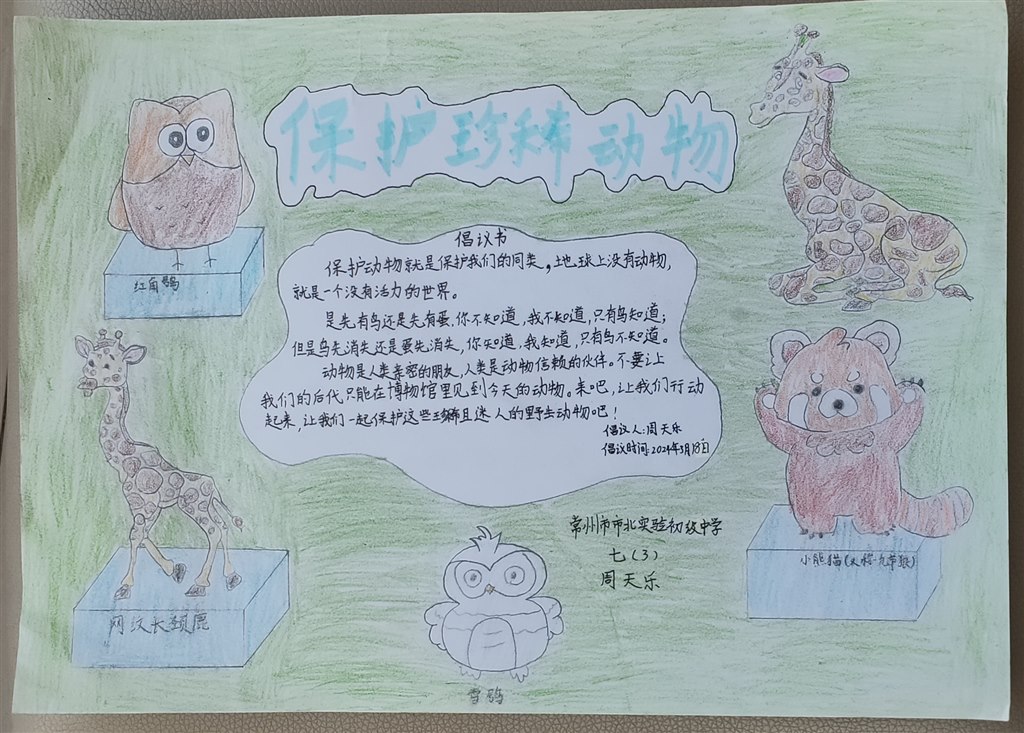 保护珍稀动物
倡议书
保护动物就是保护我们的同类。地球上没有动物，
就是一个没有活力的世界。
是先有鸟还是先有蛋，你不知道，我不知道，只有鸟知道；
但是鸟先消失还是蛋先消失，你知道，我知道，只有鸟不知道。
动物是人类亲密的朋友，人类是动物信赖的伙伴。不要让
我们的后代只能在博物馆里见到今天的动物。来吧，让我们行动
起来，让我们一起保护这些珍稀且迷人的野生动物吧！
倡议人：周天乐
倡议时间：2024年5月18日
红角鸮
网纹长颈鹿
常州市市北实验初级中学
七（3）
周天乐
小熊猫
雪鸮